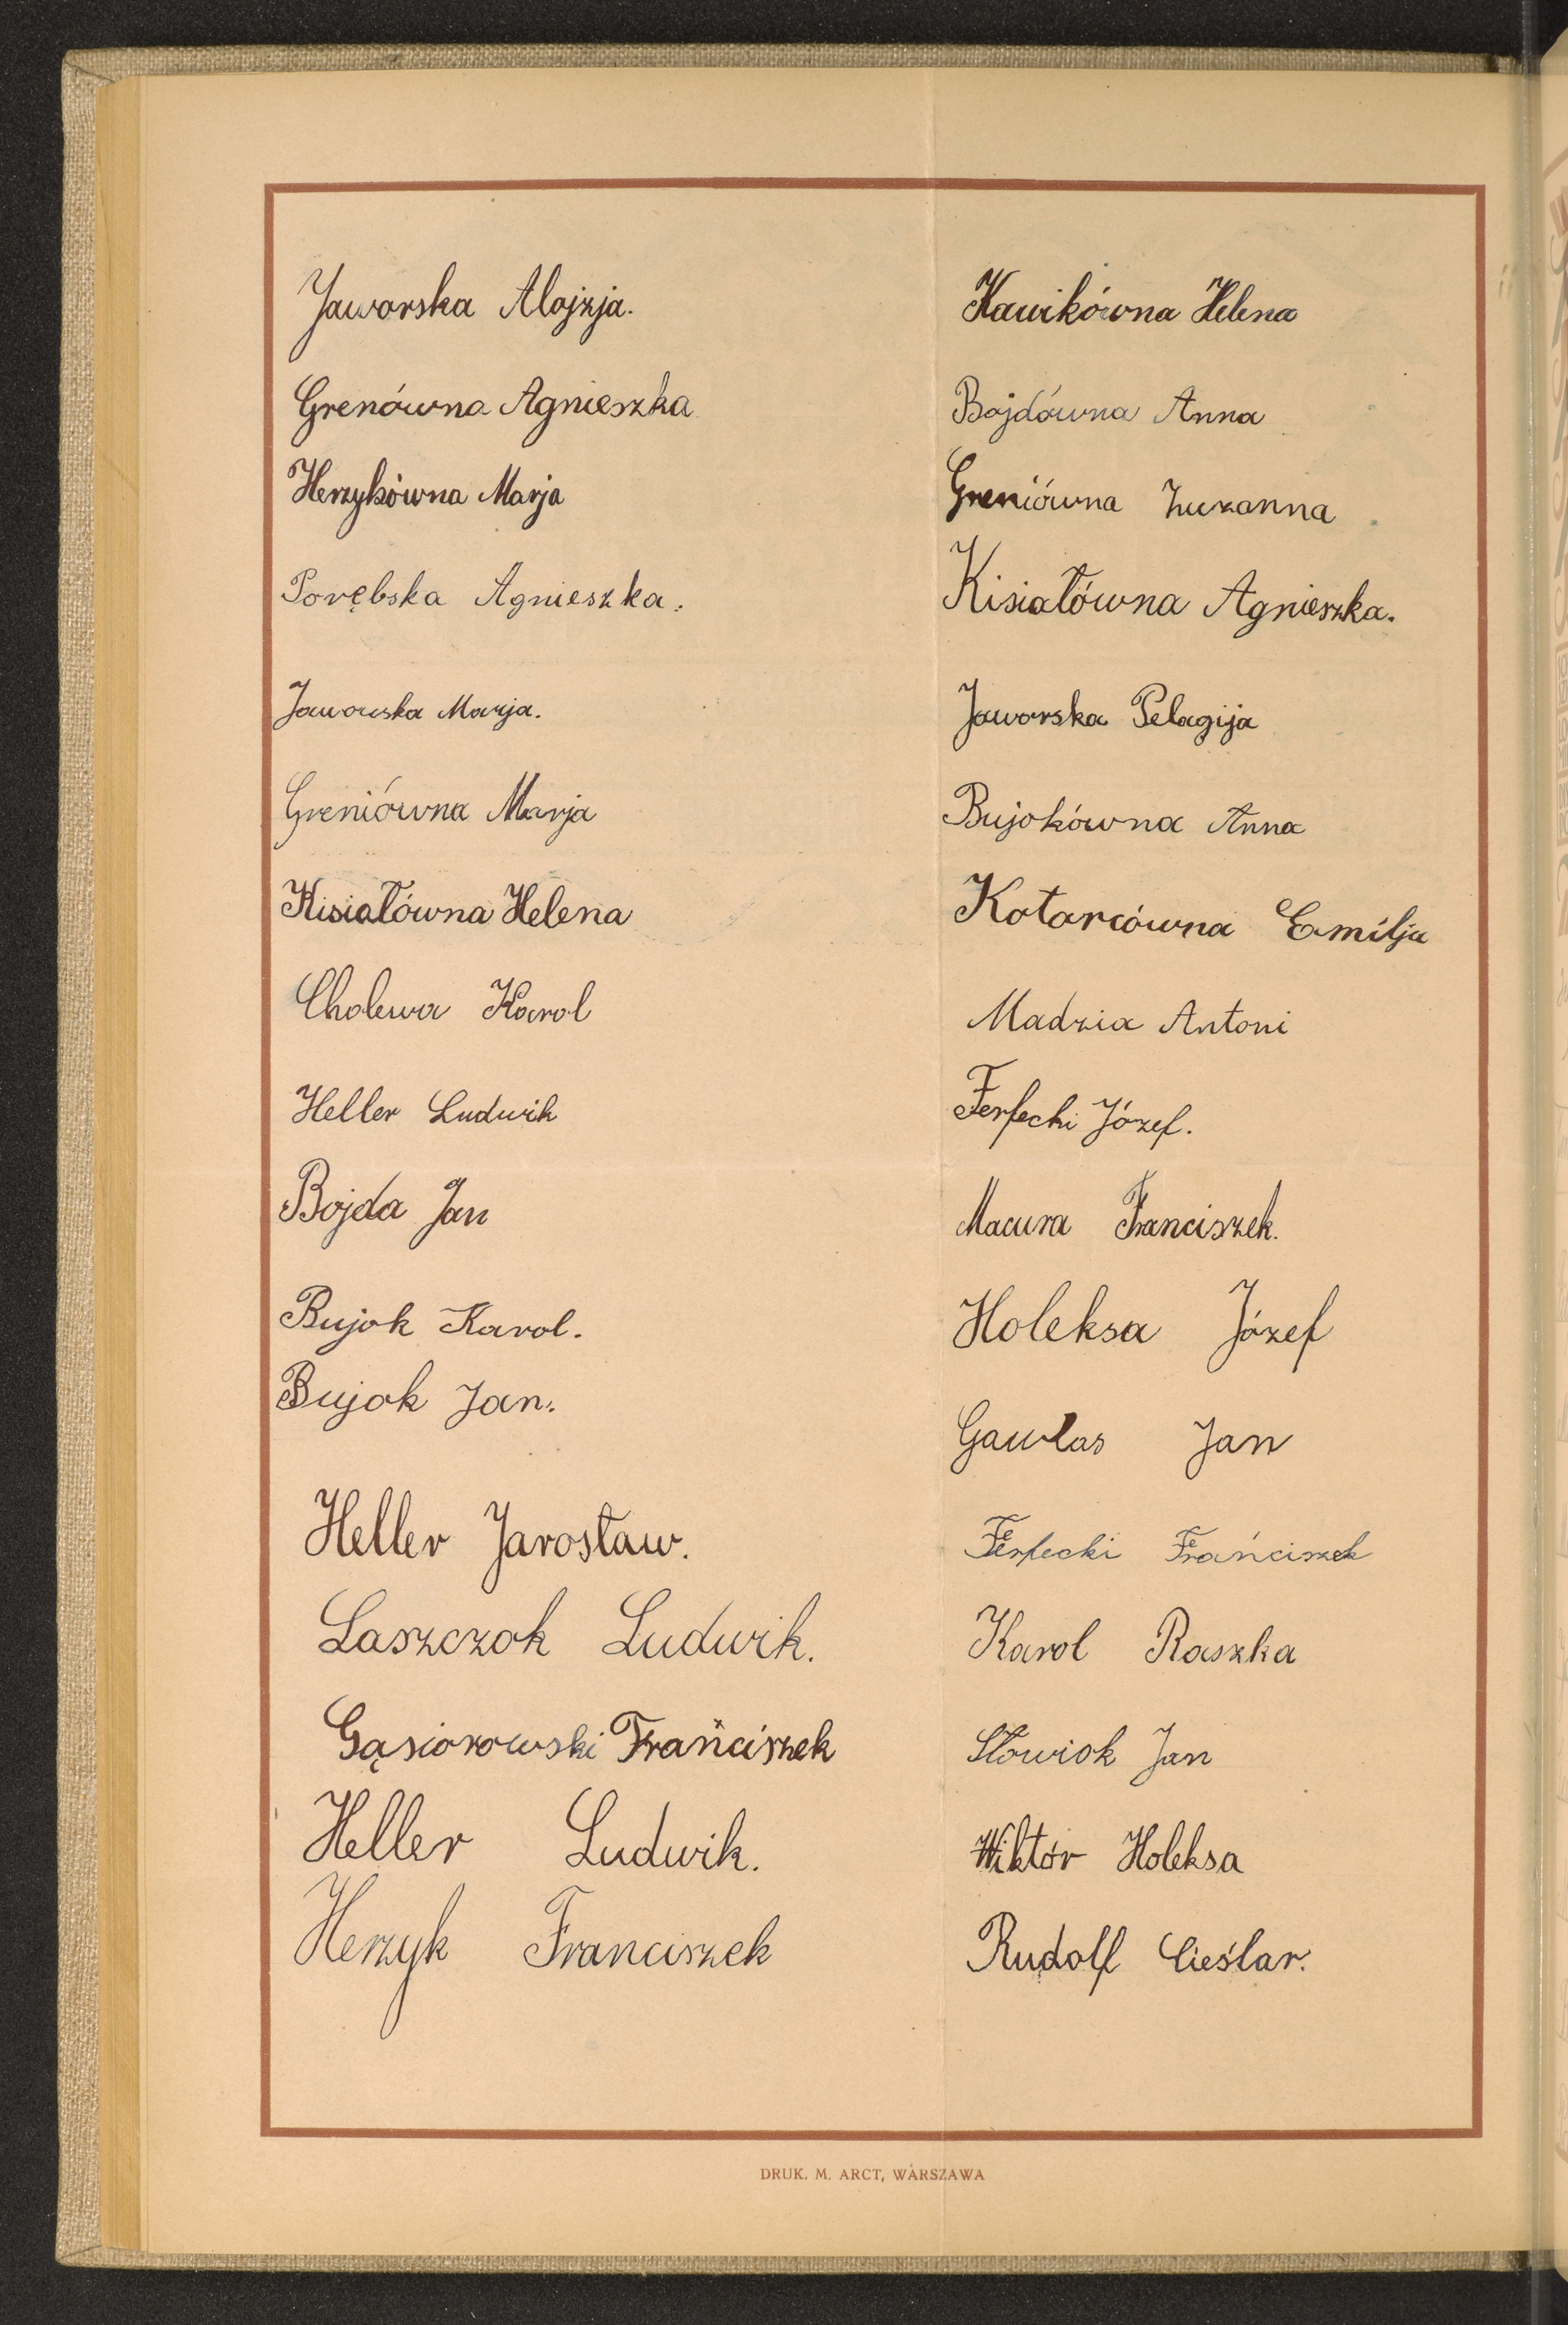 Jaworska Alojzja.
Grenówna Agnieszka
Herzykówna Marja
Porębska Agnieszka.
Jaworska Marja.
Greniówna Marja
Kisiałówna Helena
Cholewa Karol
Heller Ludwik
Bojda Jan
Bujok Karol.
Bujok Jan.
Heller Jarosław.
Laszczok Ludwik.
Gąsiorowski Frańciszek
Heller Ludwik.
Herzyk Franciszek
Kawikówna Helena
Bojdówna Anna
Greniówna Zuzanna
Kisiałówna Agnieszka.
Jaworska Pelagija
Bujokówna Anna
Kotarcówna Emilja
Madzia Antoni
Ferfecki Józef.
Macura Franciszek.
Holeksa Józef
Gawlas Jan
Ferfecki Frańciszek
Karol Raszka
Słowiok Jan
Wiktór Holeksa
Rudolf Cieślar.
DRUK. M. ARCT, WARSZAWA